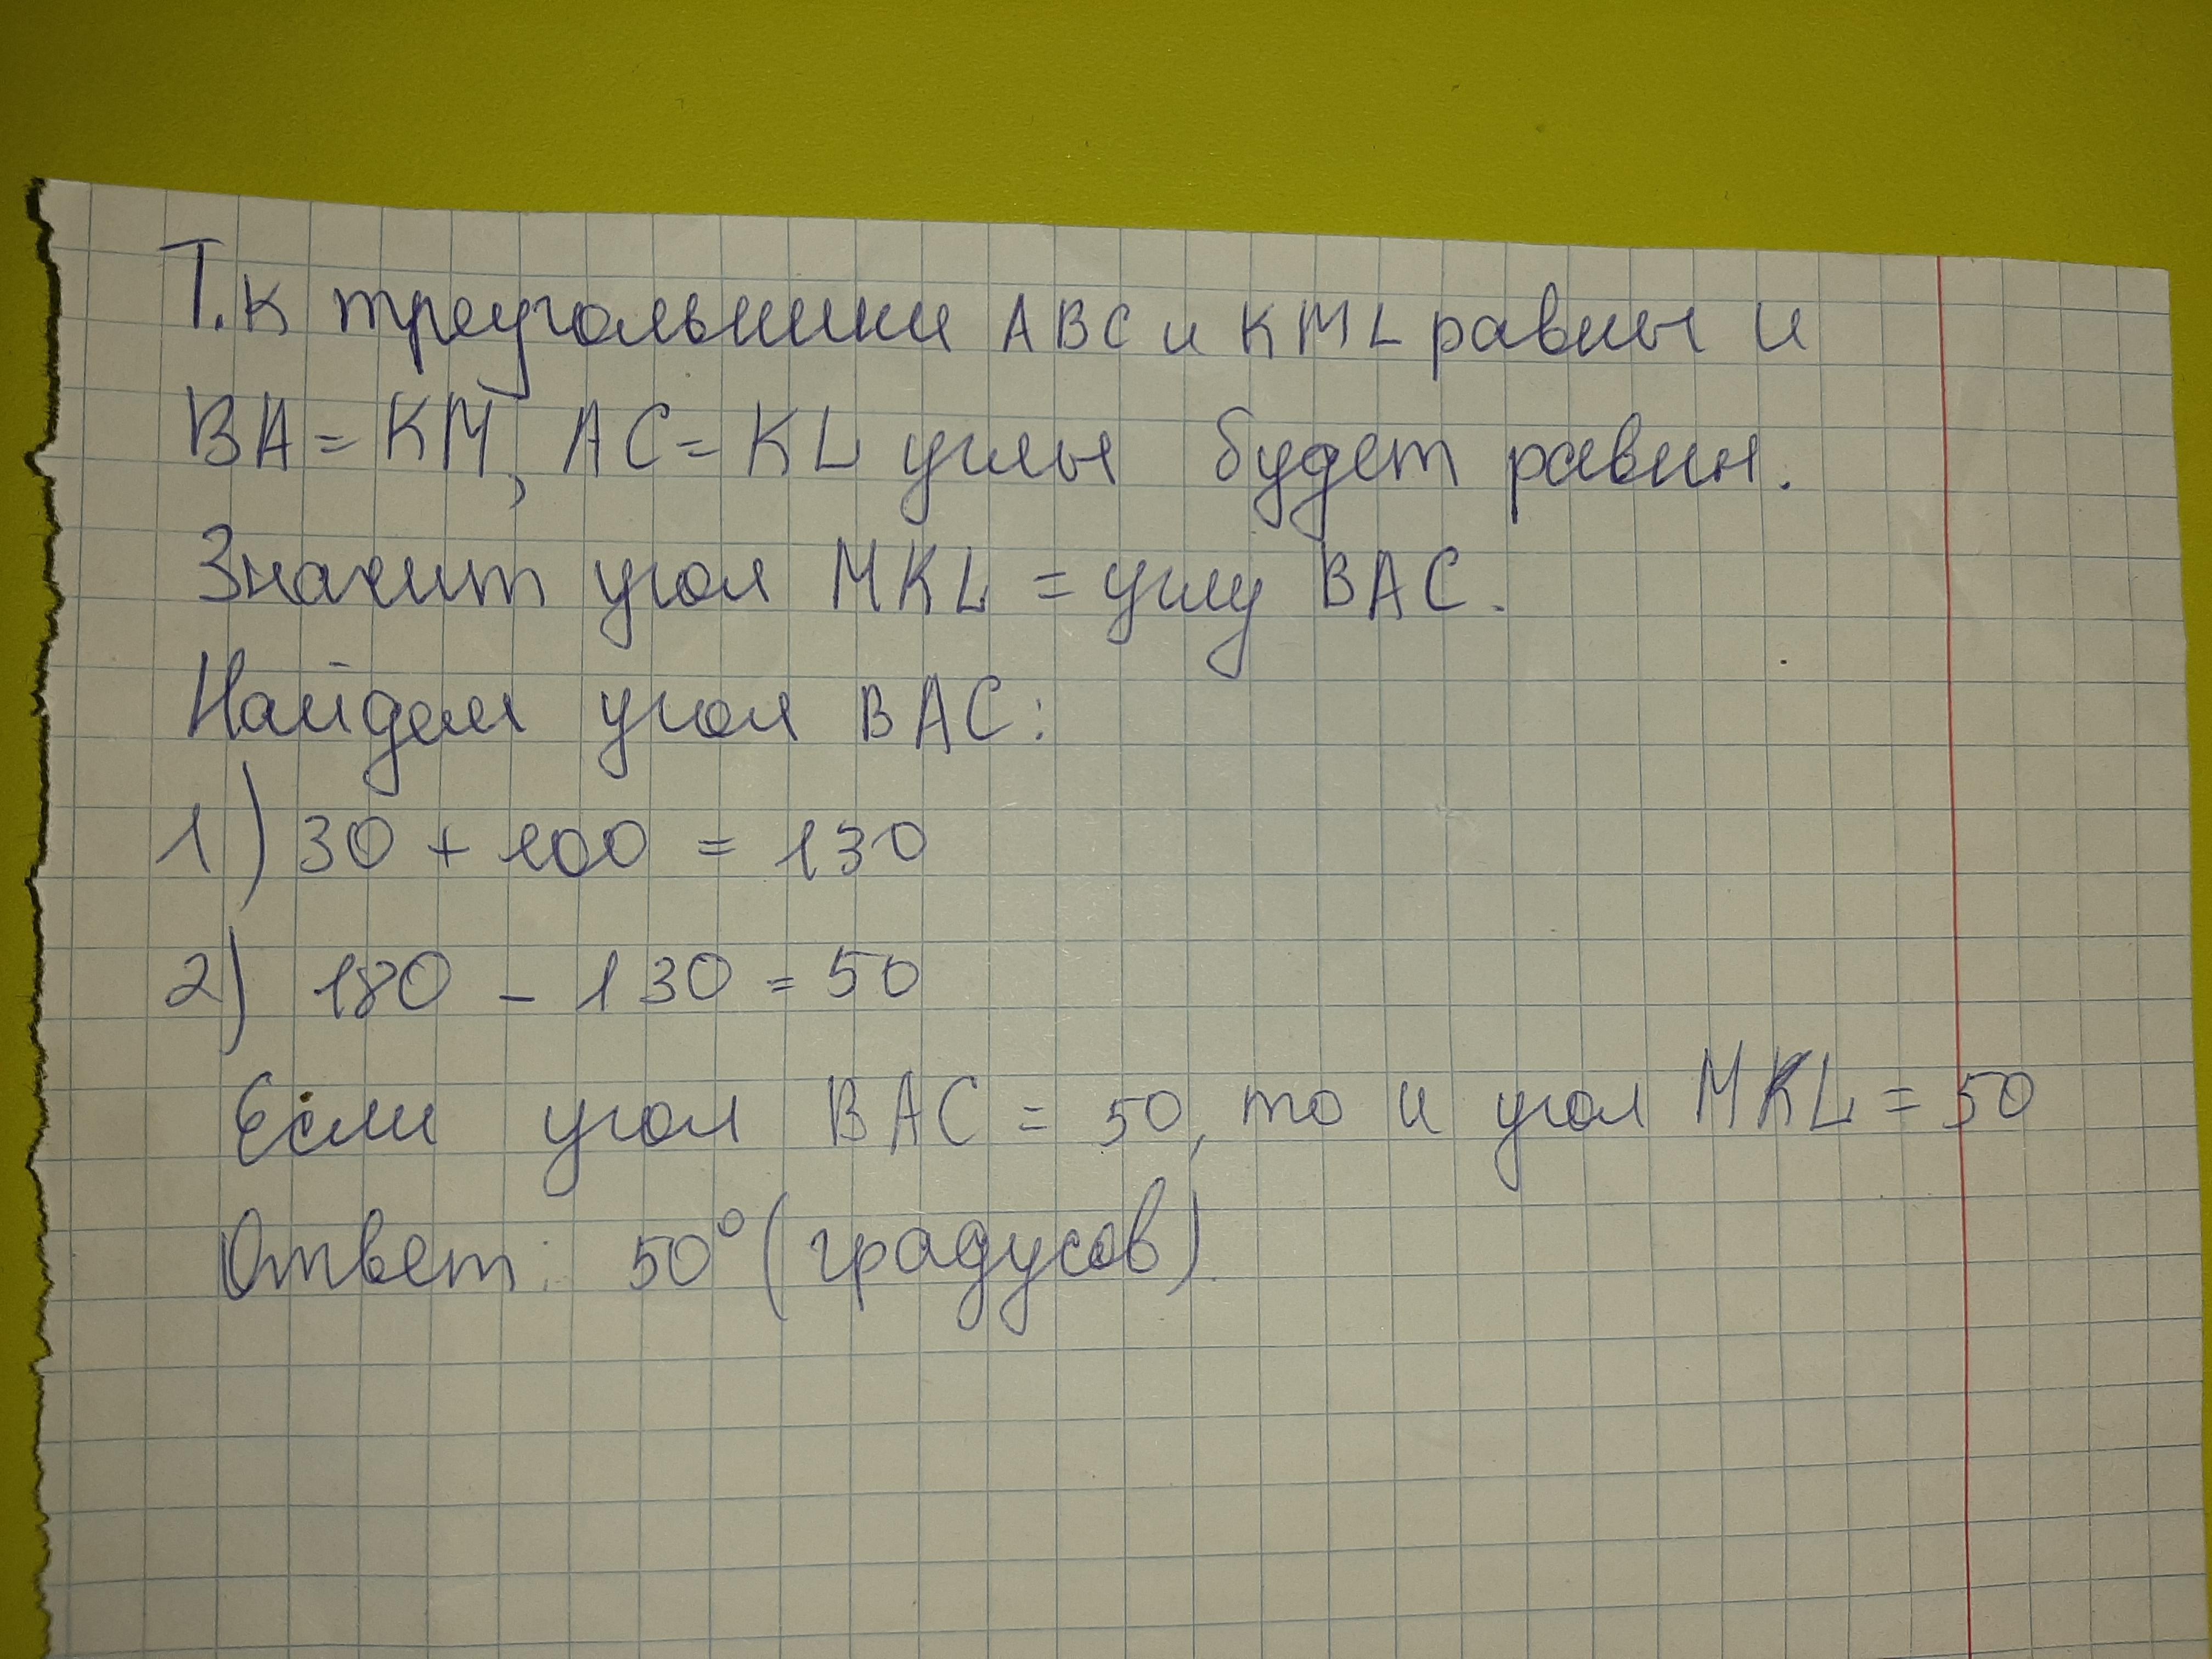 Т.к треугольники ABC и KML равны и
BA = KM, AC = KL углы будет равны.
Значит угол MKL = углу BAC.
Найдем угол BAC:
1) 30 + 100 = 130
2) 180 - 130 = 50
Если угол BAC = 50, то и угол MKL = 50
Ответ: 50° (градусов).